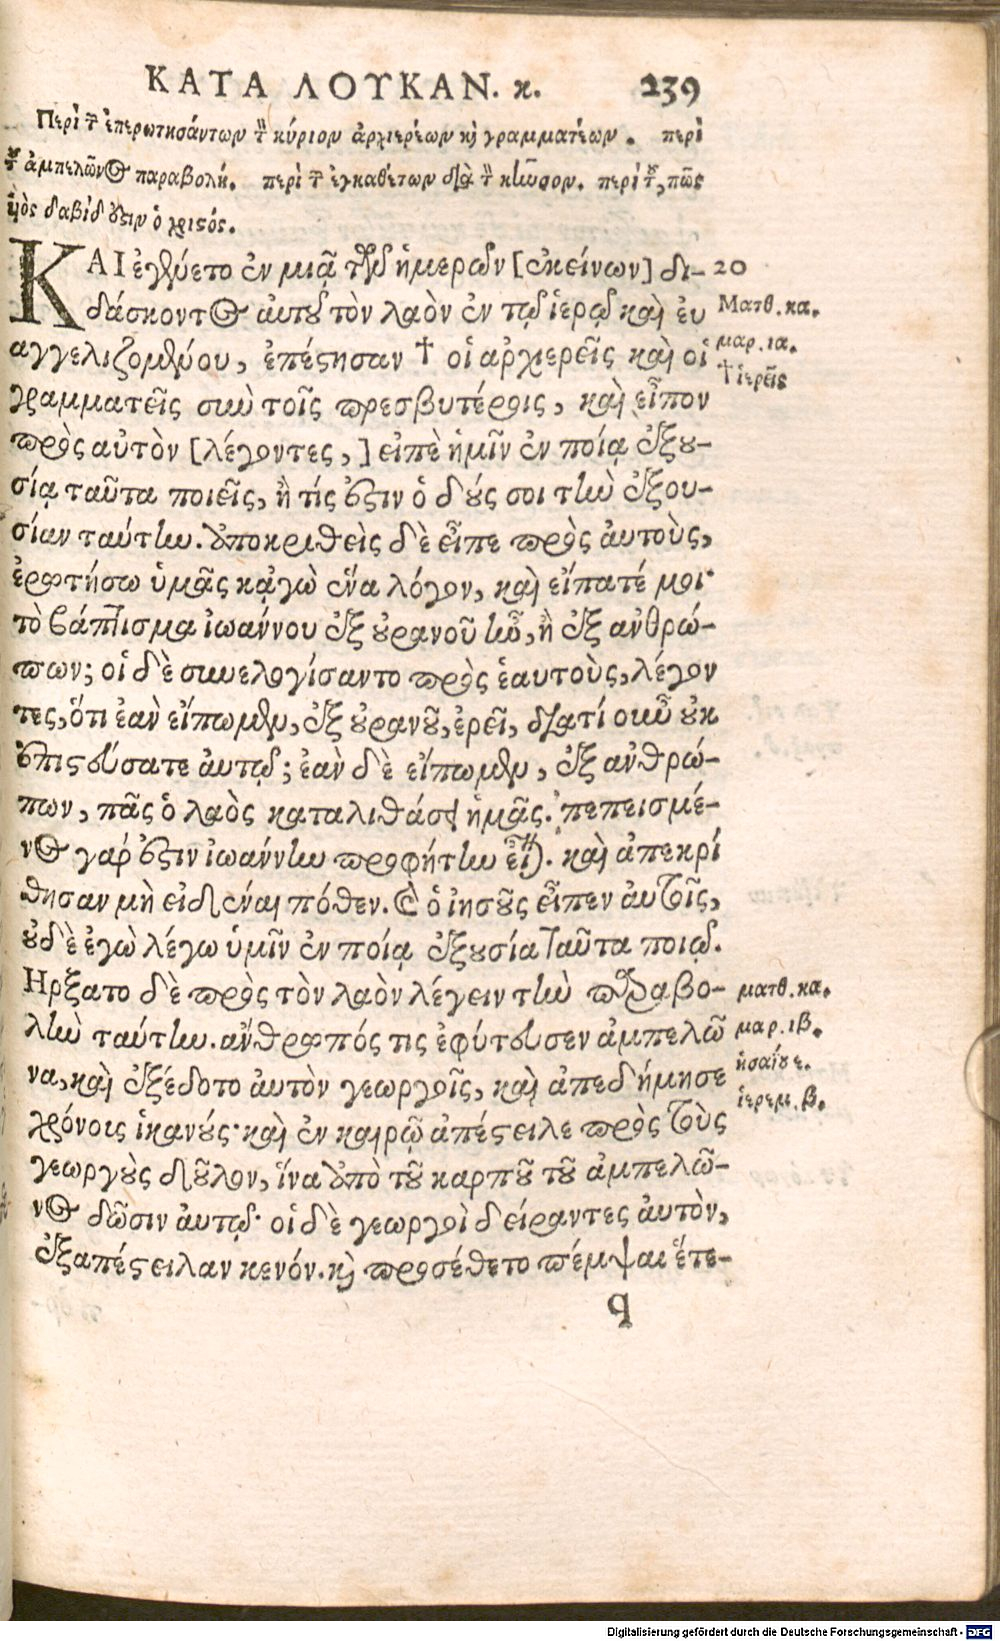 ΚΑΤΑ ΛΟΥΚΑΝ. κ. 239
Περὶ τῶν ἐπερωτησάντων τὸν κύριον ἀρχιερέων καὶ γραμματέων. περὶ
τοῦ ἀμπελῶνος παραβολή. περὶ τῶν ἐγκαθέτων διὰ τὸν κῆνσον. περὶ τοῦ, πῶς
υἱὸς δαβίδ ἐστιν ὁ χριστός.
ΚΑΙ ἐγένετο ἐν μιᾷ τῶν ἡμερῶν [ἐκείνων] δι- 20
δάσκοντος αὐτοῦ τὸν λαὸν ἐν τῷ ἱερῷ καὶ εὐ Ματθ. κα.
αγγελιζομένου, ἐπέστησαν † οἱ ἀρχιερεῖς καὶ οἱ μαρ. ια.
† ἱερεῖς
γραμματεῖς σὺν τοῖς πρεσβυτέροις, καὶ εἶπον
πρὸς αὐτὸν [λέγοντες,] εἰπὲ ἡμῖν ἐν ποίᾳ ἐξου-
σίᾳ ταῦτα ποιεῖς, ἢ τίς ἐστιν ὁ δούς σοι τὴν ἐξου-
σίαν ταύτην. ἀποκριθεὶς δὲ εἶπε πρὸς αὐτοὺς,
ἐρωτήσω ὑμᾶς κᾀγὼ ἕνα λόγον, καὶ εἴπατέ μοι·
τὸ βάπτισμα ἰωάννου ἐξ οὐρανοῦ ἦν, ἢ ἐξ ανθρώ-
πων; οἱ δὲ συνελογίσαντο πρὸς ἑαυτοὺς, λέγον
τες, ὅτι ἐαν εἴπωμεν, ἐξ οὐρανοῦ, ἐρεῖ, διατί οὖν οὐκ
ἐπιστεύσατε αὐτῷ; ἐὰν δὲ εἴπωμεν, ἐξ ανθρώ-
πων, πᾶς ὁ λαὸς καταλιθάσει ἡμᾶς. πεπεισμέ-
νος γάρ ἐστιν ἰωάννην προφήτην εἶναι. καὶ ἀπεκρί
θησαν μὴ εἰδέναι πόθεν. καὶ ὁ ἰησοῦς εἶπεν αὐτοῖς,
οὐδὲ ἐγὼ λέγω ὑμῖν ἐν ποίᾳ ἐξουσίᾳ ταῦτα ποιῶ.
Ηρξατο δὲ πρὸς τὸν λαὸν λέγειν τὴν παραβο- ματθ. κα.
λὴν ταύτην. ἄνθρωπός τις ἐφύτευσεν ἀμπελῶ μαρ. ιβ.
ἡσαΐου ε.
να, καὶ ἐξέδοτο αὐτὸν γεωργοῖς, καὶ ἀπεδήμησε
ἱερεμ. β.
χρόνοις ἱκανούς· καὶ ἐν καιρῷ ἀπέστειλε πρὸς τοὺς
γεωργοὺς δοῦλον, ἵνα ἀπὸ τοῦ καρποῦ τοῦ ἀμπελῶ-
νος δῶσιν αὐτῷ· οἱ δὲ γεωργοὶ δείραντες αὐτὸν,
ἐξαπέστειλαν κενόν. καὶ προσέθετο πέμψαι ἕτε-
q
Digitalisierung gefördert durch die Deutsche Forschungsgemeinschaft - DFG